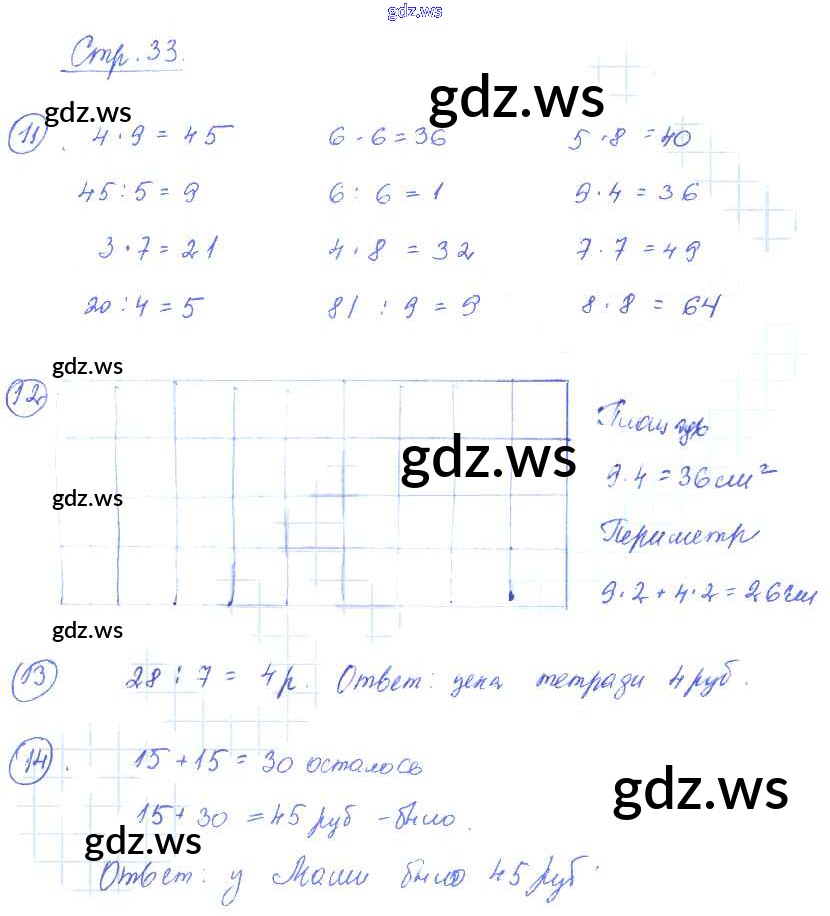 gdz.ws
Стр. 33.
gdz.ws
gdz.ws
11. 4 · 9 = 45 6 · 6 = 36 5 · 8 = 40
45 : 5 = 9 6 : 6 = 1 9 · 4 = 36
3 · 7 = 21 4 · 8 = 32 7 · 7 = 49
20 : 4 = 5 81 : 9 = 9 8 · 8 = 64
gdz.ws
12
Площадь
gdz.ws
9 · 4 = 36 см²
gdz.ws
Периметр
9 · 2 + 4 · 2 = 26 см
gdz.ws
13 28 : 7 = 4 р. Ответ: цена тетради 4 руб.
14. 15 + 15 = 30 осталось
gdz.ws
15 + 30 = 45 руб - было.
gdz.ws
Ответ: у Маши было 45 руб.